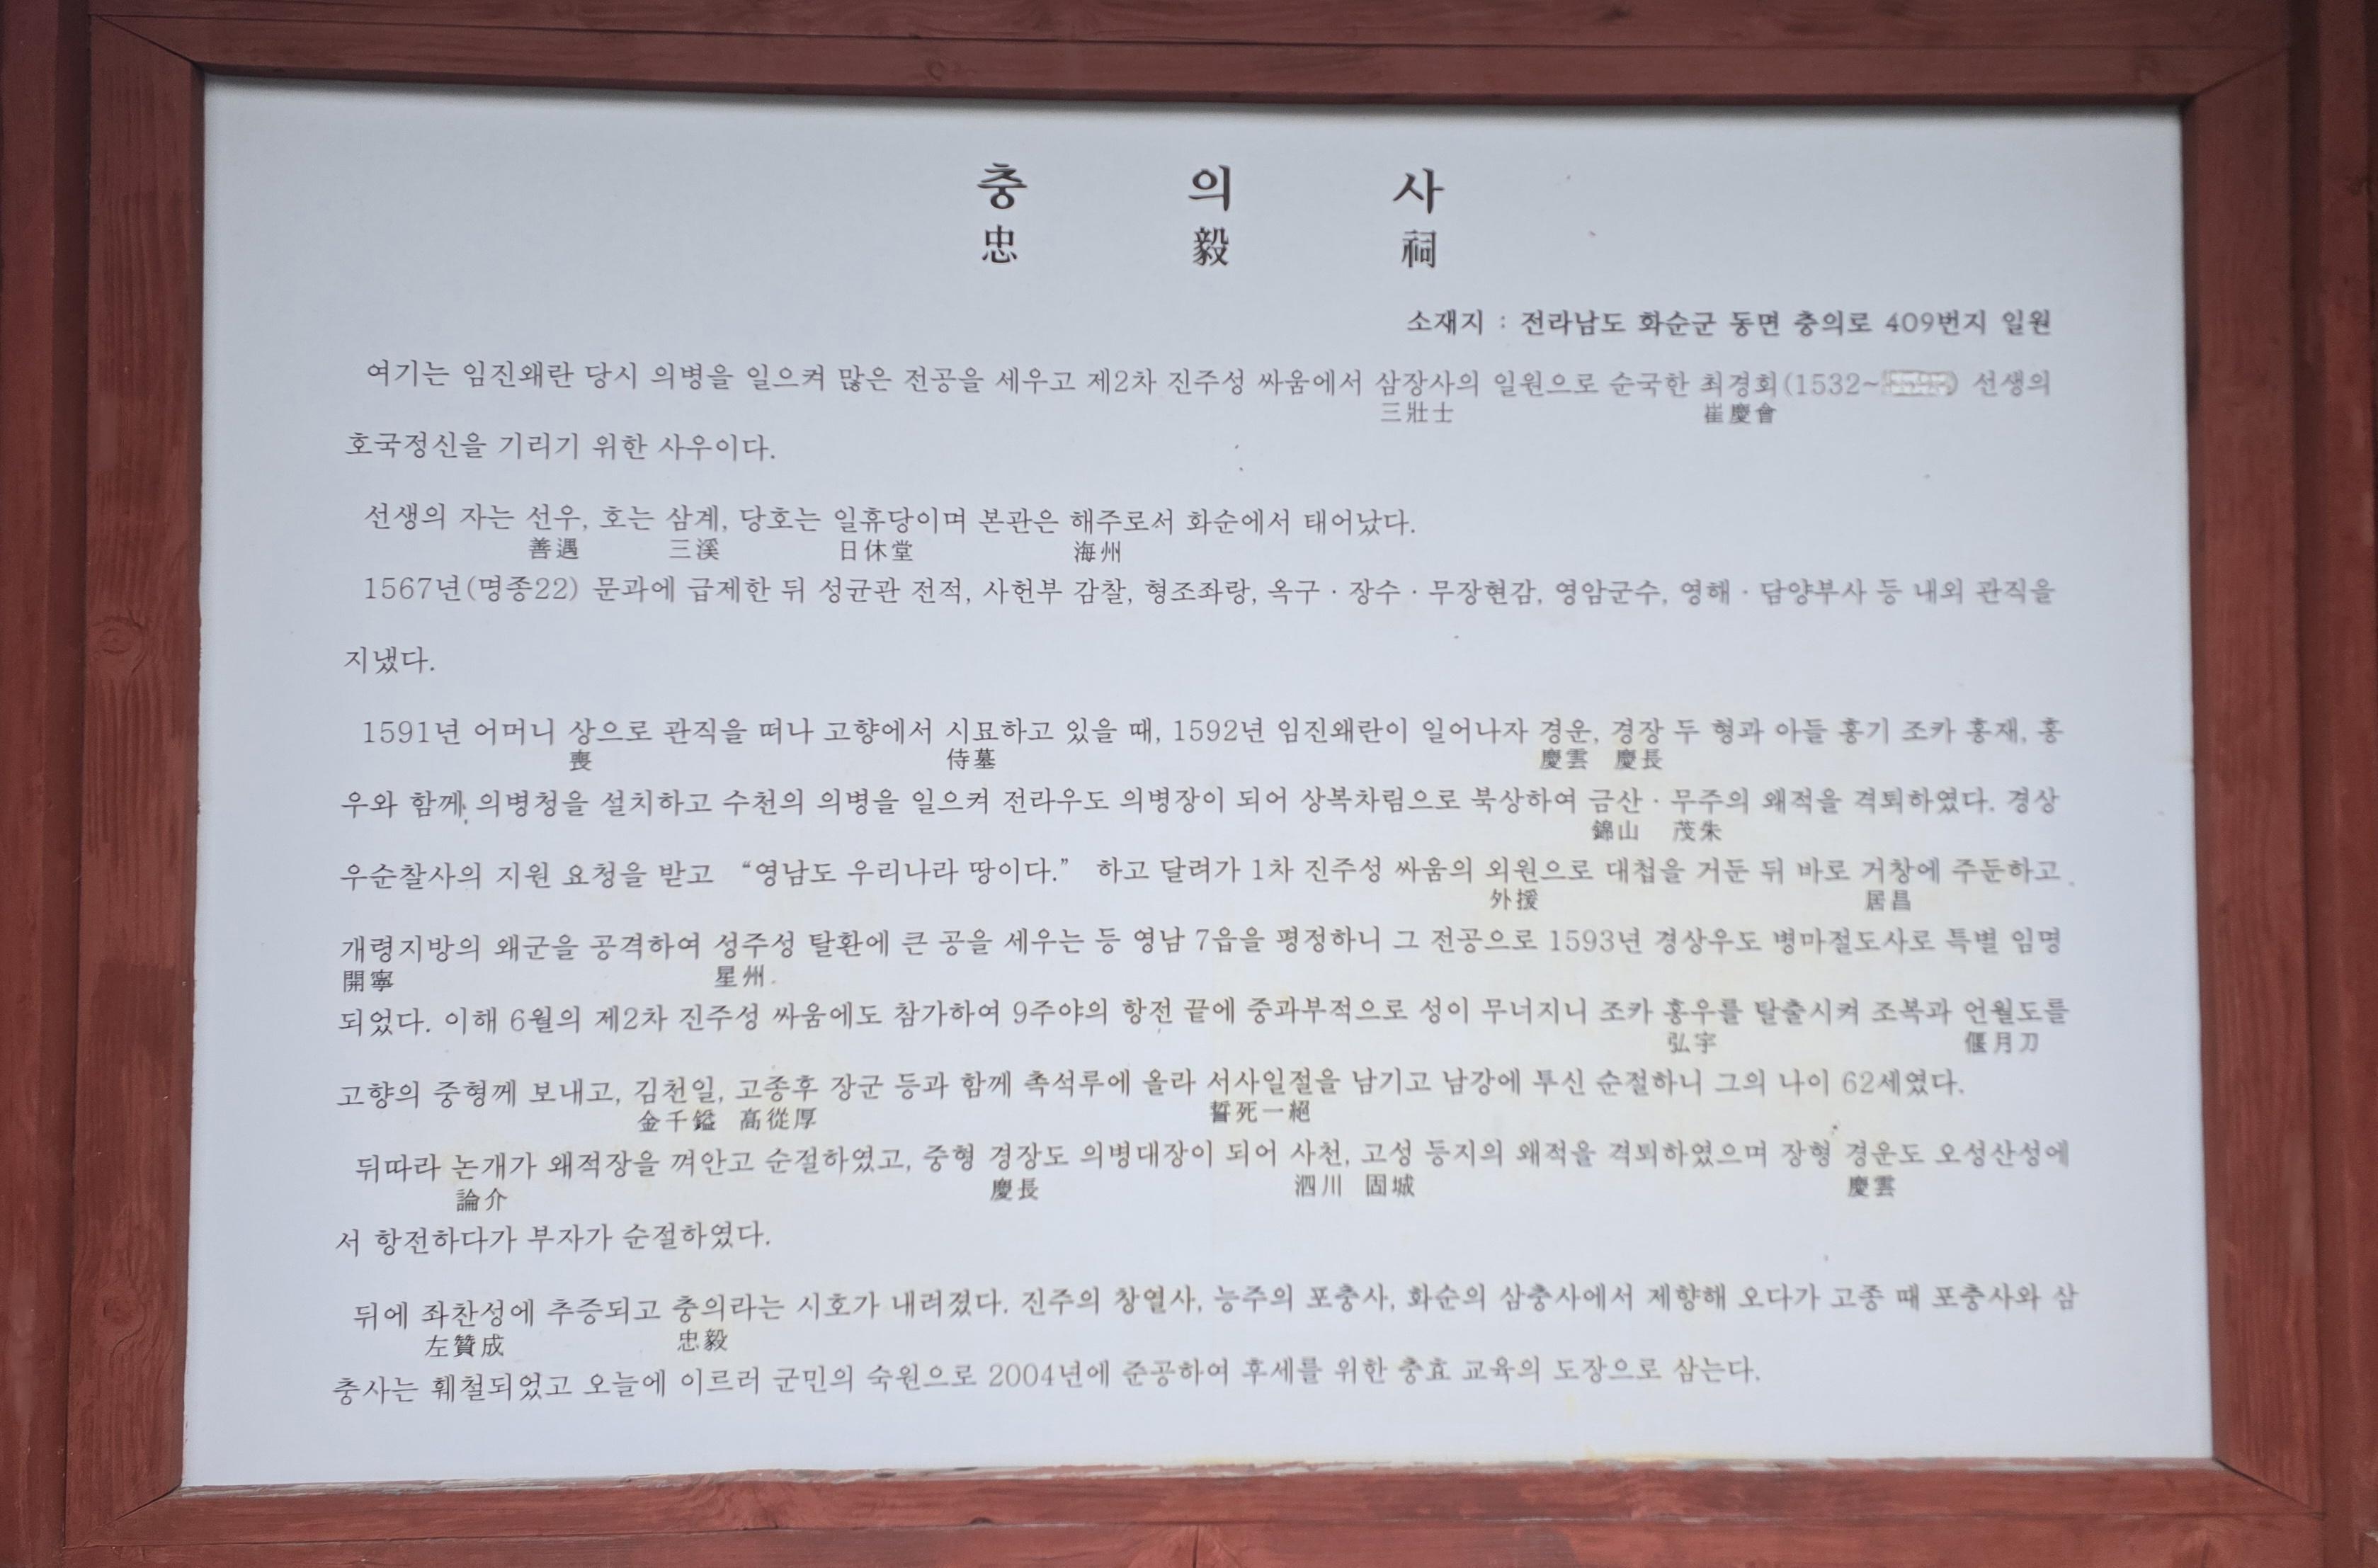 충 의 사
忠 毅 祠
소재지 : 전라남도 화순군 동면 충의로 409번지 일원
여기는 임진왜란 당시 의병을 일으켜 많은 전공을 세우고 제2차 진주성 싸움에서 삼장사의 일원으로 순국한 최경회(1532~ ) 선생의
三壯士 崔慶會
호국정신을 기리기 위한 사우이다.
선생의 자는 선우, 호는 삼계, 당호는 일휴당이며 본관은 해주로서 화순에서 태어났다.
善遇 三溪 日休堂 海州
1567년(명종22) 문과에 급제한 뒤 성균관 전적, 사헌부 감찰, 형조좌랑, 옥구 · 장수 · 무장현감, 영암군수, 영해 · 담양부사 등 내외 관직을
지냈다.
1591년 어머니 상으로 관직을 떠나 고향에서 시묘하고 있을 때, 1592년 임진왜란이 일어나자 경운, 경장 두 형과 아들 홍기 조카 홍재, 홍
喪 侍墓 慶雲 慶長
우와 함께 의병청을 설치하고 수천의 의병을 일으켜 전라우도 의병장이 되어 상복차림으로 북상하여 금산 · 무주의 왜적을 격퇴하였다. 경상
錦山 茂朱
우순찰사의 지원 요청을 받고 “영남도 우리나라 땅이다.” 하고 달려가 1차 진주성 싸움의 외원으로 대첩을 거둔 뒤 바로 거창에 주둔하고
外援 居昌
개령지방의 왜군을 공격하여 성주성 탈환에 큰 공을 세우는 등 영남 7읍을 평정하니 그 전공으로 1593년 경상우도 병마절도사로 특별 임명
開寧 星州
되었다. 이해 6월의 제2차 진주성 싸움에도 참가하여 9주야의 항전 끝에 중과부적으로 성이 무너지니 조카 홍우를 탈출시켜 조복과 언월도를
弘宇 偃月刀
고향의 중형께 보내고, 김천일, 고종후 장군 등과 함께 촉석루에 올라 서사일절을 남기고 남강에 투신 순절하니 그의 나이 62세였다.
金千鎰 高從厚 誓死一絕
뒤따라 논개가 왜적장을 껴안고 순절하였고, 중형 경장도 의병대장이 되어 사천, 고성 등지의 왜적을 격퇴하였으며 장형 경운도 오성산성에
論介 慶長 泗川 固城 慶雲
서 항전하다가 부자가 순절하였다.
뒤에 좌찬성에 추증되고 충의라는 시호가 내려졌다. 진주의 창열사, 능주의 포충사, 화순의 삼충사에서 제향해 오다가 고종 때 포충사와 삼
左贊成 忠毅
충사는 훼철되었고 오늘에 이르러 군민의 숙원으로 2004년에 준공하여 후세를 위한 충효 교육의 도장으로 삼는다.